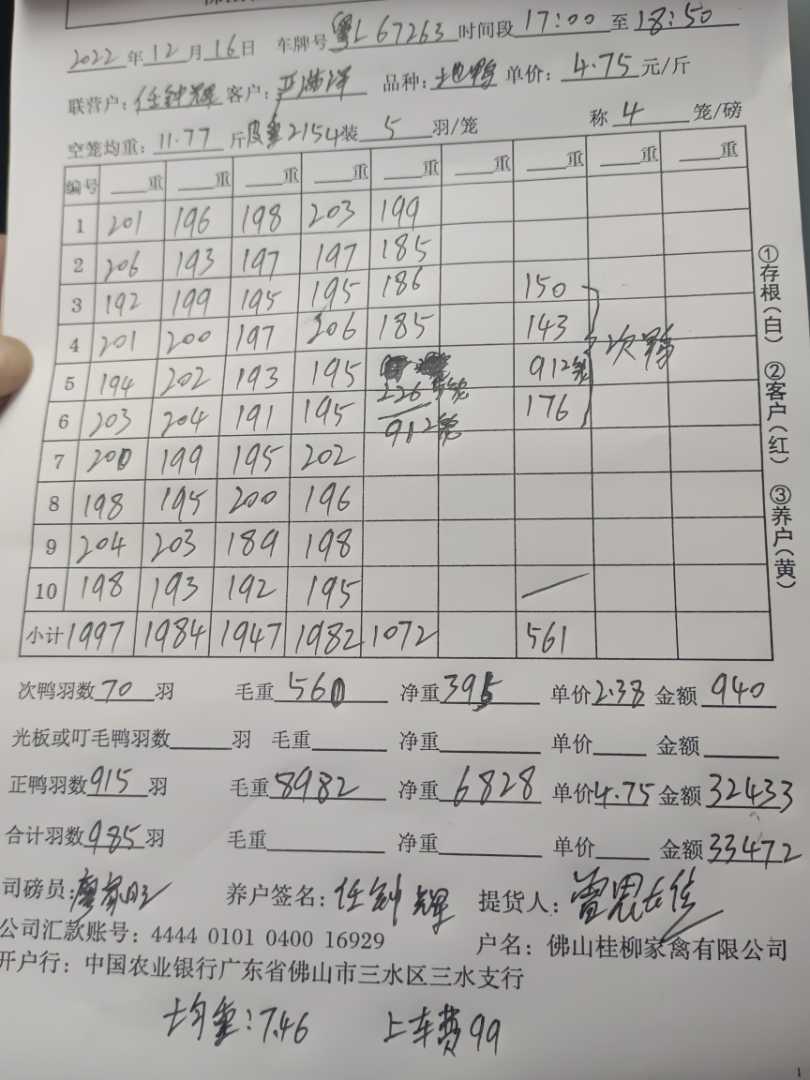 2022年12月16日 车牌号 粤L 67263 时间段 17:00 至 18:50
联营户: 任钟辉 客户: 品种: 土也鸭 单价: 4.75 元/斤
空笼均重: 11.77 斤 皮重2154 装 5 羽/笼 称 4 笼/磅
编号 重 重 重 重 重 重 重 重 重
1 201 196 198 203 199
2 206 193 197 197 185
3 192 199 195 195 186 150
4 201 200 197 206 185 143 次鸭
5 194 202 193 195 226 912笼
6 203 204 191 195 912笼 176
7 200 199 195 202
8 198 195 200 196
9 204 203 189 198
10 198 193 192 195
小计 1997 1984 1947 1982 1072 561
次鸭羽数 70 羽 毛重 560 净重 395 单价 2.38 金额 940
光板或叮毛鸭羽数 羽 毛重 净重 单价 金额
正鸭羽数 915 羽 毛重 8982 净重 6828 单价 4.75 金额 32433
合计羽数 985 羽 毛重 净重 单价 金额 33472
司磅员: 廖家旺 养户签名: 任钟辉 提货人:
公司汇款账号: 4444 0101 0400 16929 户名: 佛山桂柳家禽有限公司
开户行: 中国农业银行广东省佛山市三水区三水支行
均重:7.46 上车费99
①存根(白) ②客户(红) ③养户(黄)